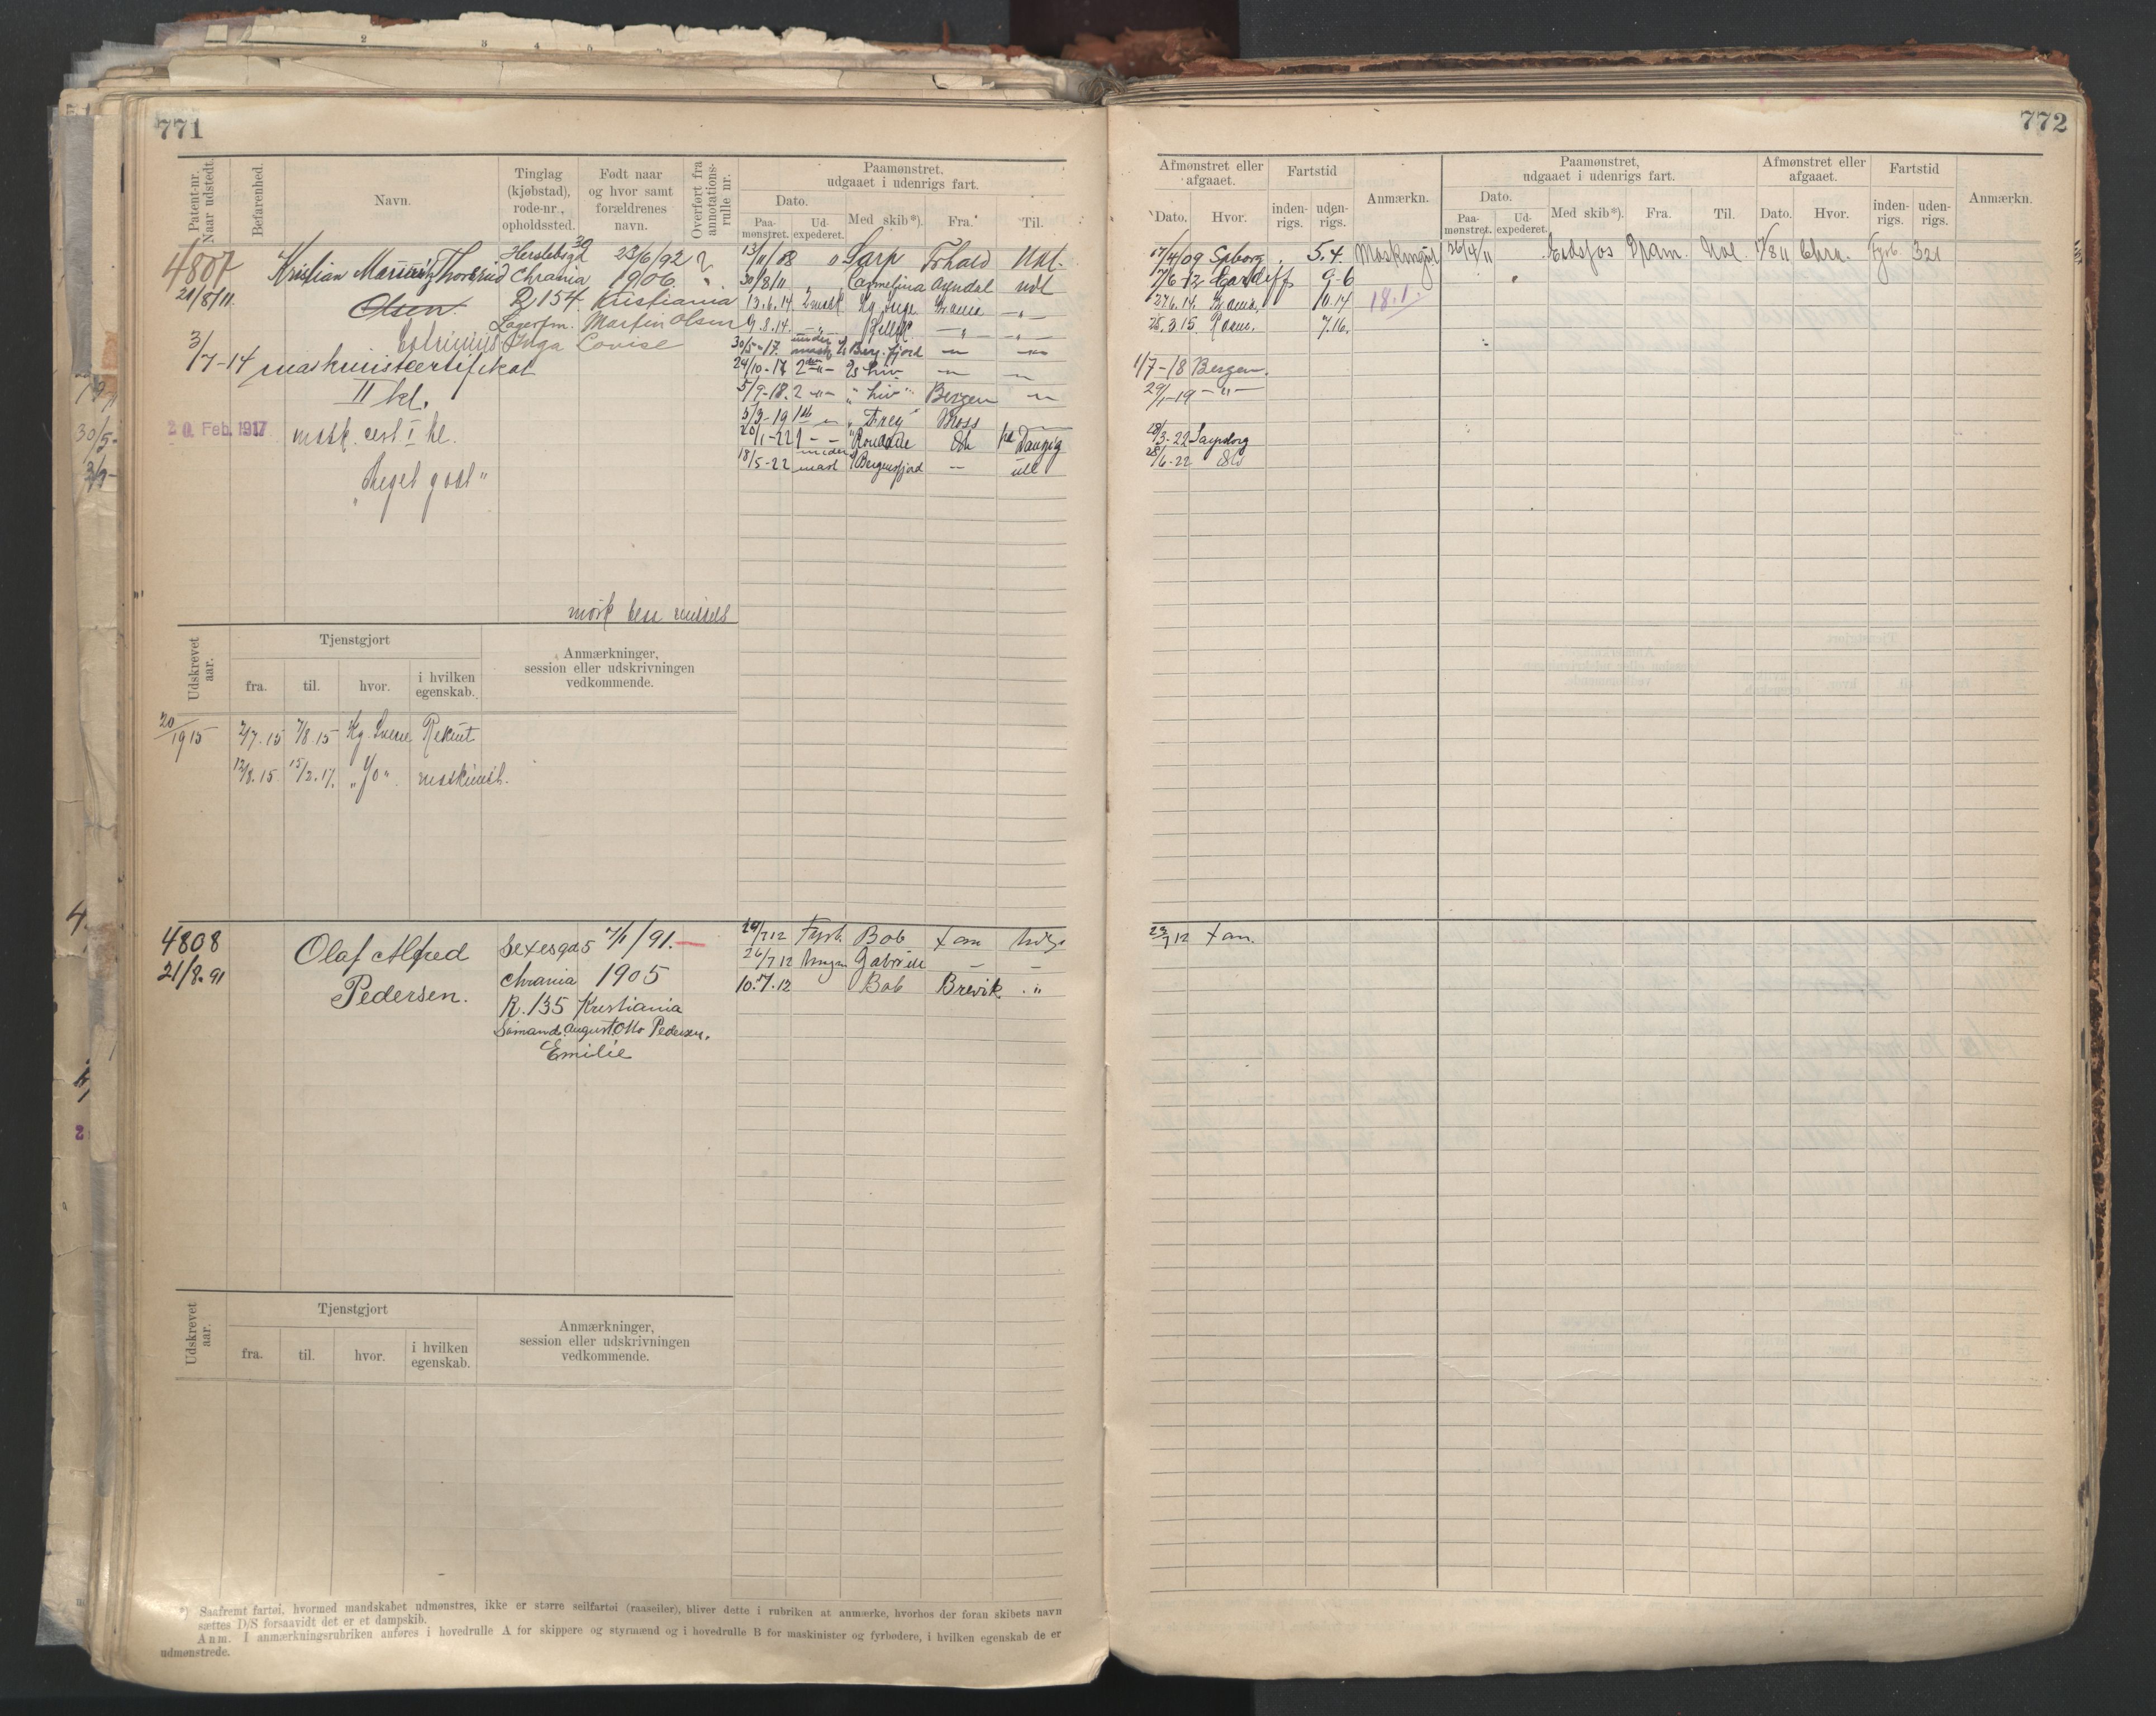 771
Patent-nr. Naar udstedt.
Befarenhed.
Navn.
Tinglag (kjøbstad), rode-nr., opholdssted.
Født naar og hvor samt forældrenes navn.
Overført fra annotations-rulle nr.
Paamønstret. udgaaet i udenrigs fart.
Dato.
Paa-mønstret.
Ud-expederet.
Med skib*).
Fra.
Til.
4807
21/8/11
Kristian Thorsrud
Olsen.
Herslebsgd 39
Chrania
R 154
Lagerfm.
23/6/92
1906
Kristiania
Martin Olsen
Inga Lovise
3/7-14 maskinistcertifikat
II kl.
20 Feb. 1917 mask. cert I kl.
"Meget godt"
13/11/08 Sarp Fr.hald Udl.
30/8/11 Carmelina Arendal udl
13.6.14 2 mask Kg. Inge
9.8.14.
30/5-17. under mask Bergfjord
24/10-17 2 den
5/9-18. 2 Bergen
5/3-19 1ste "Frey" Moss
20/1-22 1 Danzig
18/5-22 mask Bergensfjord
Udskrevet aar.
Tjenstgjort
fra.
til.
hvor.
i hvilken egenskab.
Anmærkninger, session eller udskrivningen vedkommende.
20/1915 2/7.15 7/8.15 Rekrut
12/8.15 15/2.17. maskinist.
4808
21/8.91
Olaf Alfred
Pedersen.
Sexesgd 5
Chrania
R. 135
Sømand August Otto Pedersen.
Emilie
7/1/91.
1905
Kristiania
24/7 12 Fyrb. Bob
26/7 12 Gabriele
10.7.12 Bob Brevik.
Udskrevet aar.
Tjenstgjort
fra.
til.
hvor.
i hvilken egenskab.
Anmærkninger, session eller udskrivningen vedkommende.
*) Saafremt fartøi, hvormed mandskabet udmønstres, ikke er større seilfartøi (raaseiler), bliver dette i rubriken at anmærke, hvorhos der foran skibets navn
sættes D/S forsaavidt det er et dampskib.
Anm. I anmærkningsrubriken anføres i hovedrulle A for skippere og styrmænd og i hovedrulle B for maskinister og fyrbødere, i hvilken egenskab de er
udmønstrede.
772
Afmønstret eller afgaaet.
Dato.
Hvor.
Fartstid
inden-rigs.
uden-rigs.
Anmærkn.
Paamønstret, udgaaet i udenrigs fart.
Dato.
Paa-mønstret.
Ud-expederet.
Med skib*).
Fra.
Til.
Afmønstret eller afgaaet.
Dato.
Hvor.
Fartstid
inden-rigs.
uden-rigs.
Anmærkn.
17/4/09 Spborg 5.4. 26/4/11 Eidsfos Udl. Chra. Fyrb. 321
7/6-12 Cardiff 9-6
27.6.14. 0.14 18.1.
25.3.15. 7.16.
1/7-18 Bergen.
29/1-19
18/3-22 Sarpsborg
28/6-22
23/7 12